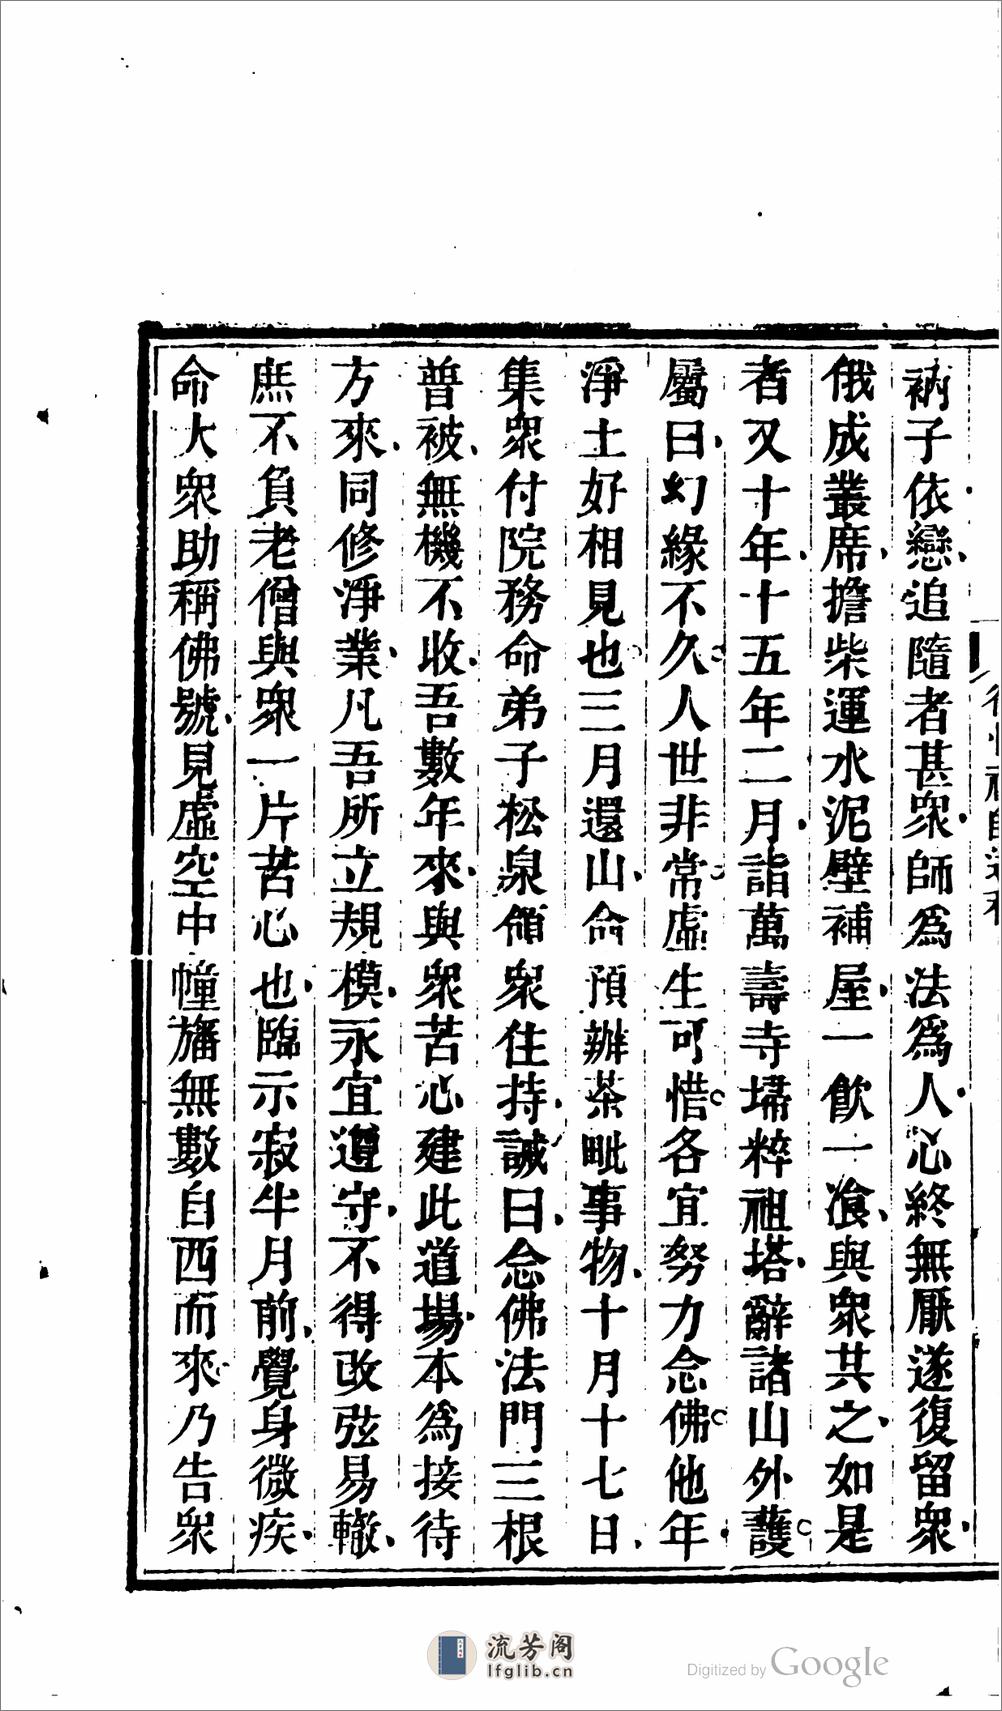 衲子依戀追隨者甚衆師爲法爲人心終無厭遂復留衆
俄成叢席擔柴運水泥壁補屋一飮一飡與衆共之如是
者又十年十五年二月詣萬壽寺掃粹祖塔辭諸山外護
屬曰幻緣不久人世非常虛生可惜各宜努力念佛他年
淨土好相見也三月還山命預辦茶毗事物十月十七日
集衆付院務命弟子松泉領衆住持誡曰念佛法門三根
普被無機不收吾數年來與衆苦心建此道場本爲接待
方來同修淨業凡吾所立規模永宜遵守不得改弦易轍
庶不負老僧與衆一片苦心也臨示寂半月前覺身微疾
命大衆助稱佛號見虛空中幢旛無數自西而來乃告衆
流芳阁
lfglib.cn
Digitized by Google